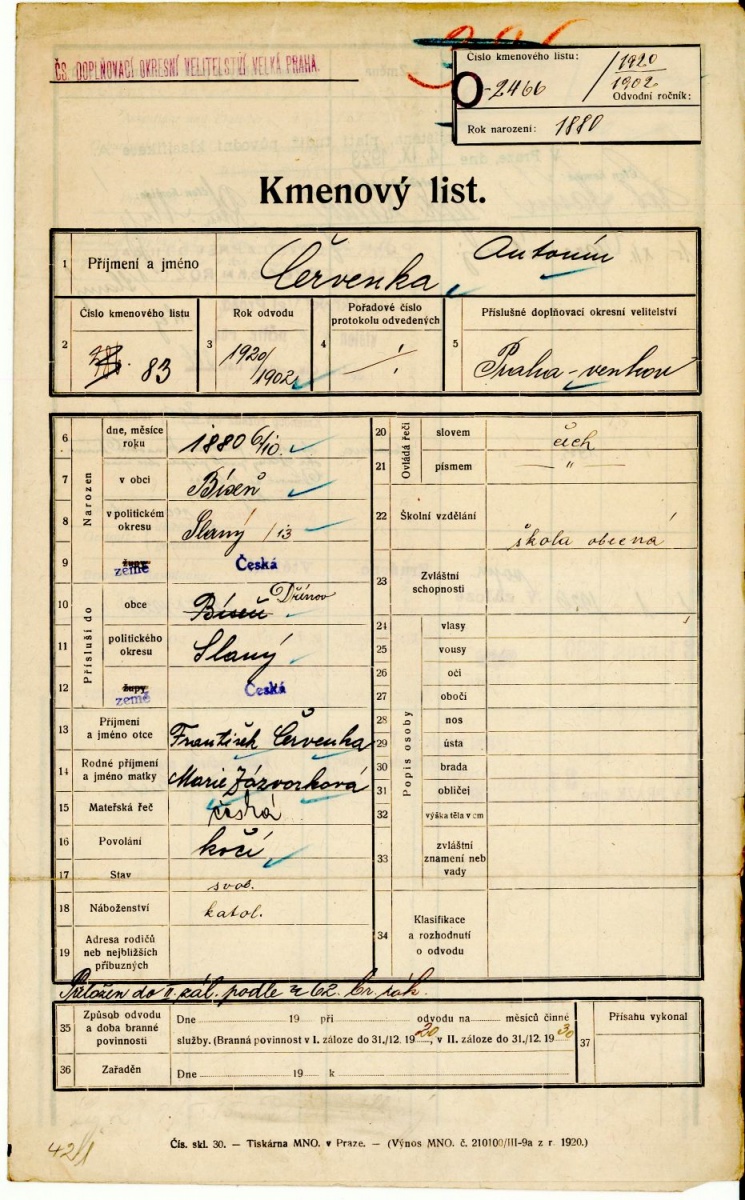 ČS. DOPLŇOVACÍ OKRESNÍ VELITELSTVÍ VELKÁ PRAHA.
Číslo kmenového listu:
O-2466 / 1920
1902
Odvodní ročník:
Rok narození: 1880
Kmenový list.
1 Příjmení a jméno Červenka, Antonín
2 Číslo kmenového listu 83
3 Rok odvodu 1920/1902
4 Pořadové číslo protokolu odvedených
5 Příslušné doplňovací okresní velitelství Praha-venkov
Narozen
6 dne, měsíce roku 1880 6/10.
7 v obci Bíseň
8 v politickém okresu Slaný /13
9 župy země Česká
Přísluší do
10 obce Bíseň Dřínov
11 politického okresu Slaný
12 župy země Česká
13 Příjmení a jméno otce František Červenka
14 Rodné příjmení a jméno matky Marie Jázvorková
15 Mateřská řeč česká
16 Povolání kočí
17 Stav svob.
18 Náboženství katol.
19 Adresa rodičů neb nejbližších příbuzných
Ovládá řeči
20 slovem čech
21 písmem — " —
22 Školní vzdělání škola obecná
23 Zvláštní schopnosti
Popis osoby
24 vlasy
25 vousy
26 oči
27 obočí
28 nos
29 ústa
30 brada
31 obličej
32 výška těla v cm
33 zvláštní znamení neb vady
34 Klasifikace a rozhodnutí o odvodu
Přeložen do II. zál. podle § 62. br. zák.
35 Způsob odvodu a doba branné povinnosti
Dne 19 při odvodu na měsíců činné
služby. (Branná povinnost v I. záloze do 31./12. 1920, v II. záloze do 31./12. 1930
36 Zařaděn Dne 19 k
37 Přísahu vykonal
Čís. skl. 30. — Tiskárna MNO. v Praze. — (Výnos MNO. č. 210100/III-9a z r. 1920.)